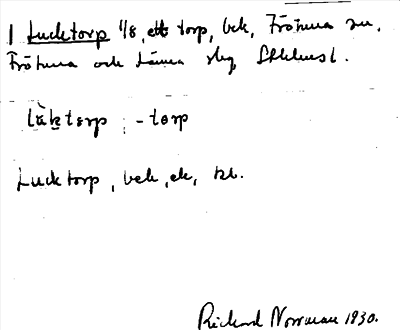 1 Lucktorp 1/8, ett torp, bek, Frötuna sn.
Frötuna och Länna skg Sthlms l.
-torp
Lucktorp, bek, ek,
Richard Norrman 1930.